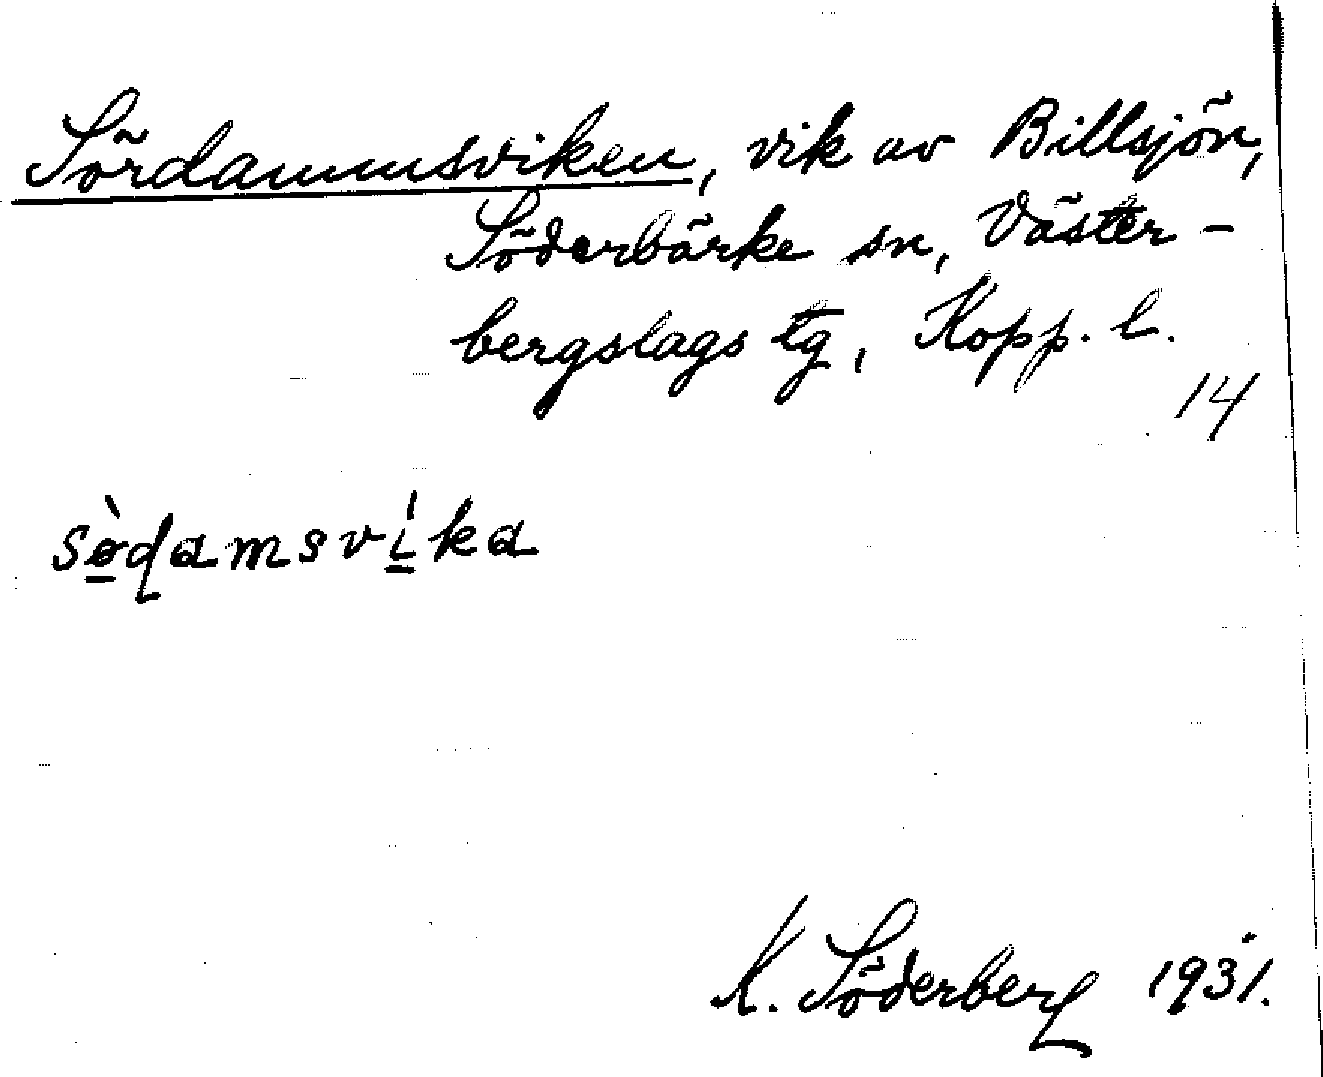 Sördammsviken, vik av Billsjön,
Söderbärke sn, Väster-
bergslags tg, Kopp. l.
14
sø̀ɖamsvíka
K. Söderberg 1931.